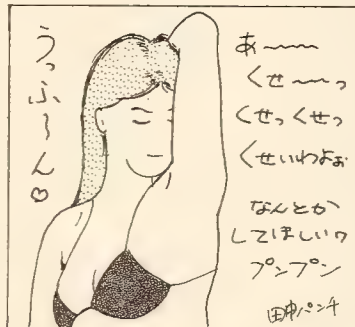 うっふ〜ん♡
あ〜〜
くせ〜〜っ
くせっくせっ
くせいわよぉ
なんとか
してほしいワ
プンプン
田中パンチ